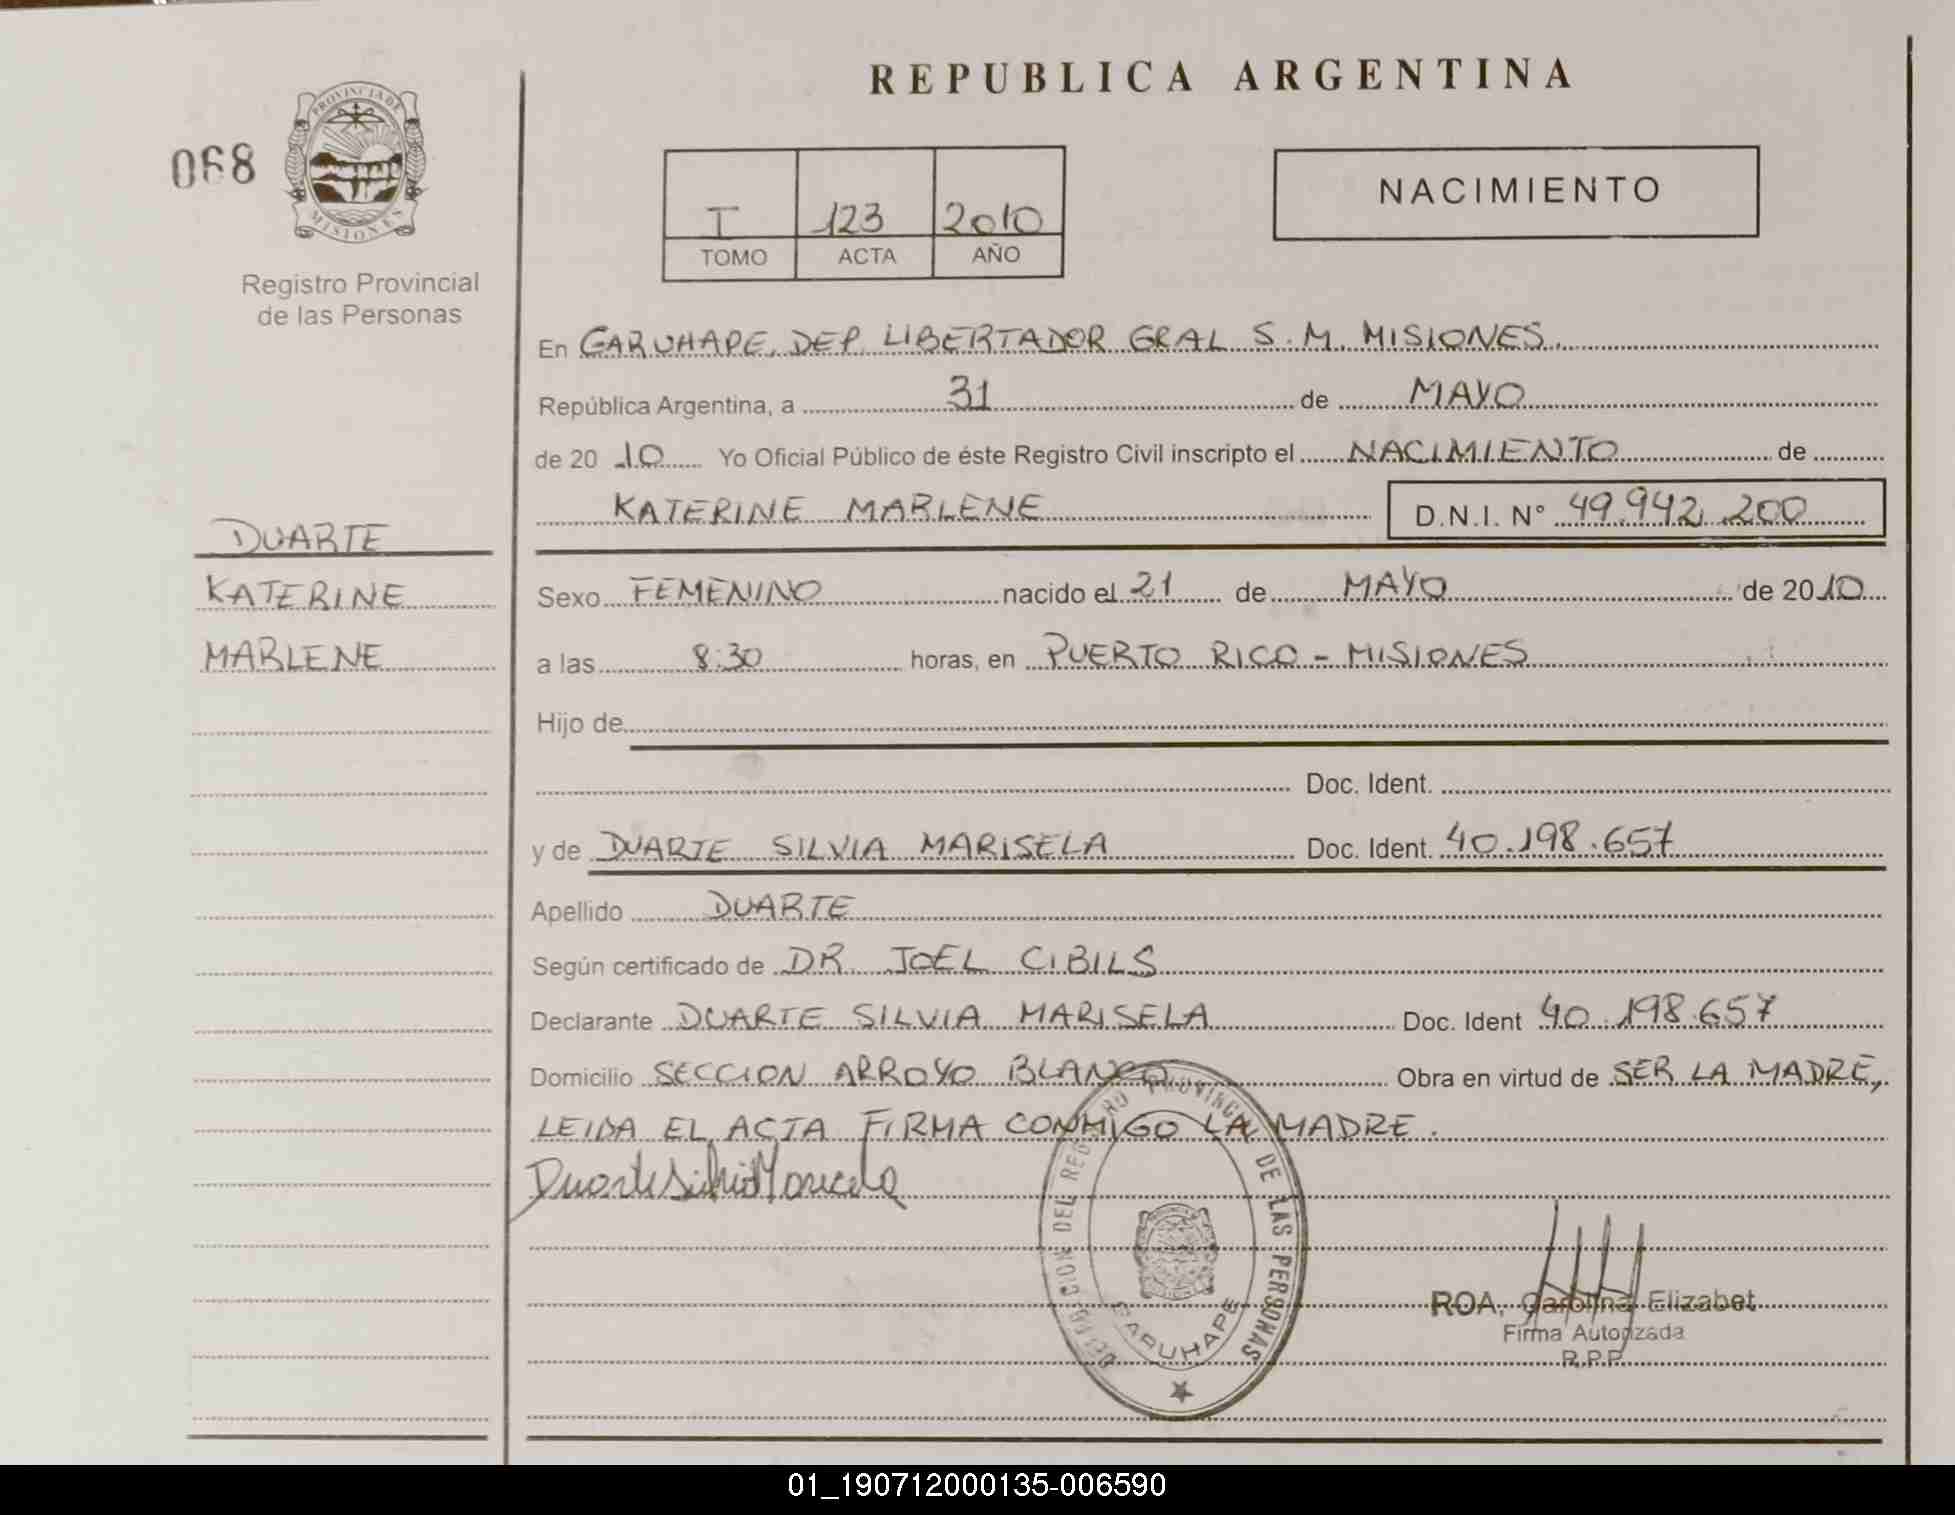 REPUBLICA ARGENTINA
068
PROVINCIA DE
MISIONES
Registro Provincial
de las Personas
I 123 2010
TOMO ACTA AÑO
NACIMIENTO
En GARUHAPE, DEP. LIBERTADOR GRAL S.M. MISIONES.
República Argentina, a 31 de MAYO
de 20 10 Yo Oficial Público de éste Registro Civil inscripto el NACIMIENTO de
KATERINE MARLENE D.N.I. N° 49.942.200
DUARTE
KATERINE
MARLENE
Sexo FEMENINO nacido el 21 de MAYO de 2010
a las 8:30 horas, en PUERTO RICO - MISIONES
Hijo de
Doc. Ident.
y de DUARTE SILVIA MARISELA Doc. Ident. 40.198.657
Apellido DUARTE
Según certificado de DR. JOEL CIBILS
Declarante DUARTE SILVIA MARISELA Doc. Ident 40.198.657
Domicilio SECCION ARROYO BLANCO Obra en virtud de SER LA MADRE,
LEIDA EL ACTA FIRMA CONMIGO LA MADRE.
Duarte Silvia Maricela
DELEGACION DEL REGISTRO PROVINCIAL DE LAS PERSONAS
GARUHAPE
ROA, Carolina Elizabet
Firma Autorizada
R.P.P.
01_190712000135-006590